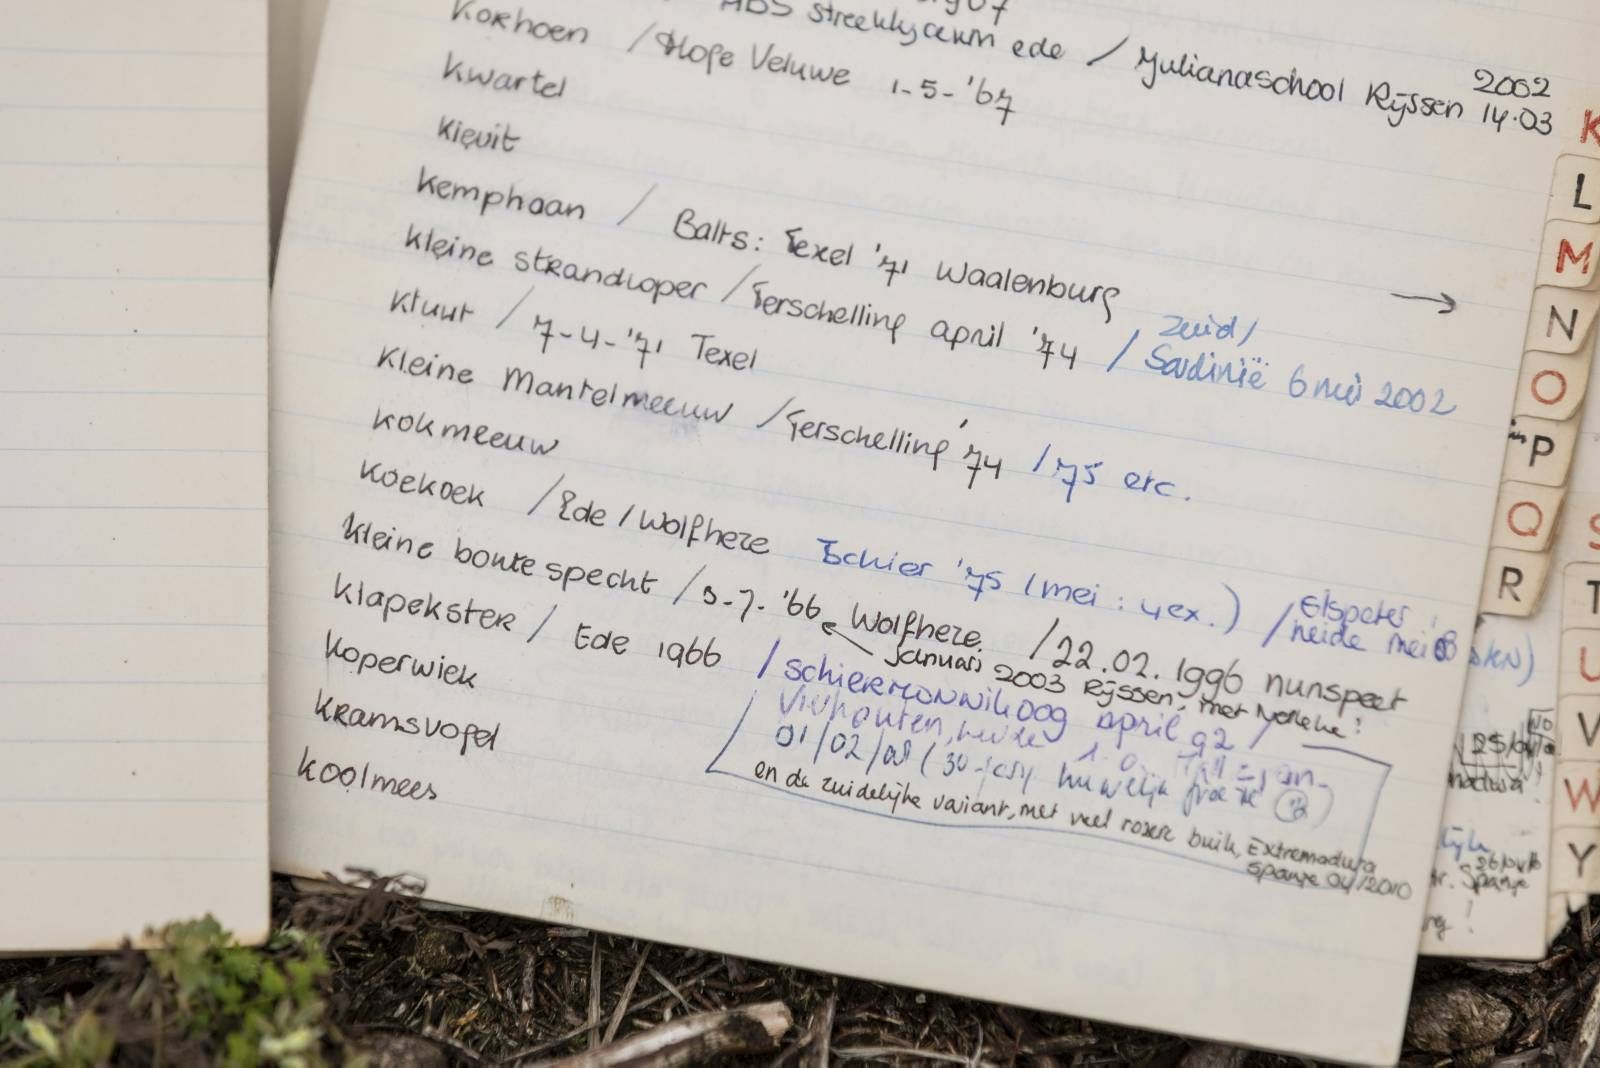 streeklyceum ede / Julianaschool Rijssen 14.03
2002
Korhoen / Hoge Veluwe 1-5-'67
Kwartel
Kievit
Kemphaan / Balts: Texel '71 Waalenburg →
Kleine strandloper / Terschelling april '74 / Zuid/
Sardinië 6 mei 2002
Kluut / 7-4-'71 Texel
Kleine Mantelmeeuw / Terschelling '74 / 75 etc.
Kokmeeuw
Koekoek / Ede / Wolfheze Schier '75 (mei: 4 ex.) / Elspeter
heide mei
Kleine bonte specht / 3-7-'66 Wolfheze. / 22.02.1996 nunspeet
januari 2003 Rijssen, met
Klapekster / Ede 1966 / Schiermonnikoog april 92 /
Vierhouten, heide
01/02/08 (30-jarig huwelijk
en de zuidelijke variant, met veel roze buik, Extremadura
Spanje 04/2010
Koperwiek
Kramsvogel
Koolmees
K
L
M
N
O
P
Q
R
S
T
U
V
W
Y